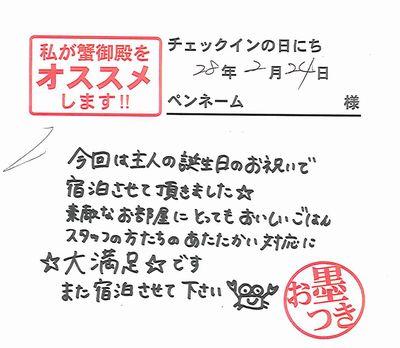 私が蟹御殿を
オススメ
します!!
チェックインの日にち
28年2月24日
ペンネーム 様
今回は主人の誕生日のお祝いで
宿泊させて頂きました☆
素敵なお部屋にとってもおいしいごはん
スタッフの方たちのあたたかい対応に
☆大満足☆です
また宿泊させて下さい
お墨つき